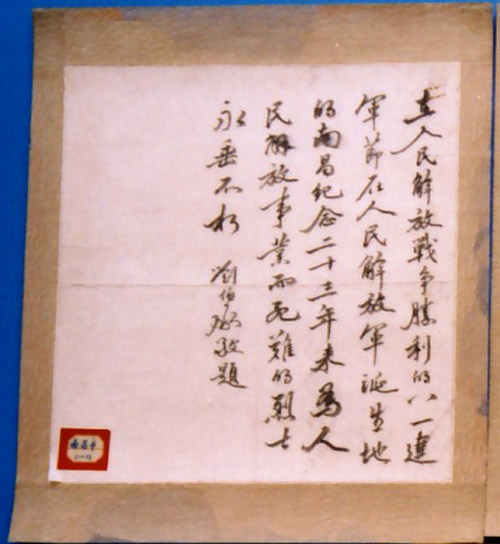 在人民解放戰争勝利的八一建
軍節在人民解放軍诞生地
的南昌纪念二十三年来為人
民解放事業而死難的烈士
永垂不朽 劉伯承敬題